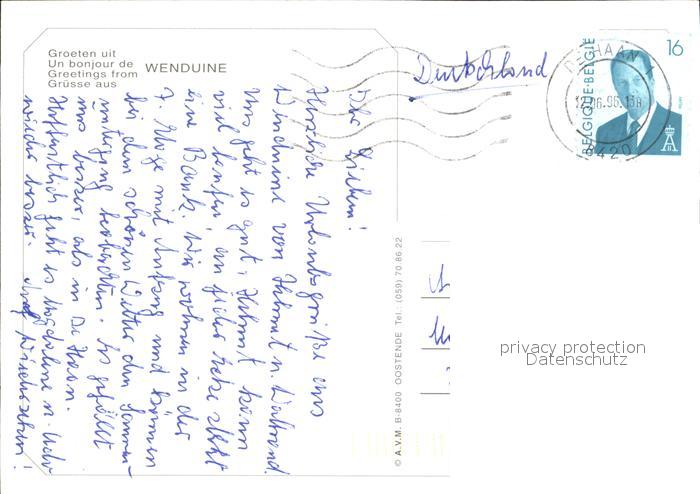 Groeten uit
Un bonjour de
Greetings from
Grüsse aus
WENDUINE
Deutschland
BELGIQUE-BELGIE
16
DE HAAN
12.06.96.13H
8420
Ihr Lieben!
Herzliche Urlaubsgrüße aus
Wenduine von Helmut u. Waltraud.
Uns geht es gut, Helmut kann
viel laufen, an jeder Ecke steht
eine Bank. Wir wohnen in der
7. Etage mit Aufzug und können
bei dem schönen Wetter den Sonnen-
untergang beobachten. Es gefällt
uns besser, als in De Haan.
Hoffentlich geht es Magdalene u. Udo
wieder besser. Auf Wiedersehen!
© A.V.M. B-8400 OOSTENDE Tel.: (059) 70 86 22
privacy protection
Datenschutz